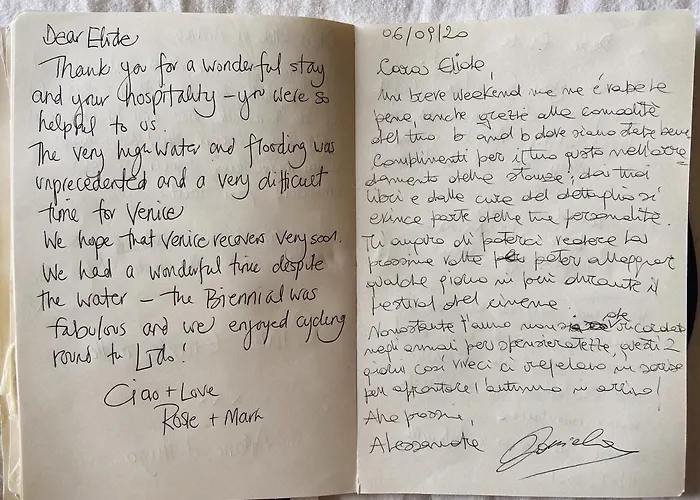 Dear Elide
Thank you for a wonderful stay
and your hospitality – you were so
helpful to us.
The very high water and flooding was
unprecedented and a very difficult
time for Venice
We hope that Venice recovers very soon.
We had a wonderful time despite
the water – the Biennial was
fabulous and we enjoyed cycling
round tu Lido!
Ciao + Love
Rose + Mark
06/09/20
Cara Elide,
un breve weekend ma ne é valsa la
pena, anche grazie alla comodità
del tuo b and b dove siamo state bene
Complimenti per il tuo gusto nell'arre
damento delle stanze; dai tuoi
libri e dalla cura del dettaglio si
evince parte della tua personalità.
Ti auguro di poterci vedere la
prossima volta per poter alloggiare
qualche giorno in più durante il
festival del cinema.
Nonostante l'anno non sia
negli annali per spensieratezza, questi 2
giorni così vivaci ci regalano un sorriso
per affrontare l'autunno in arrivo!
Alla prossima,
Alessandra Daniela